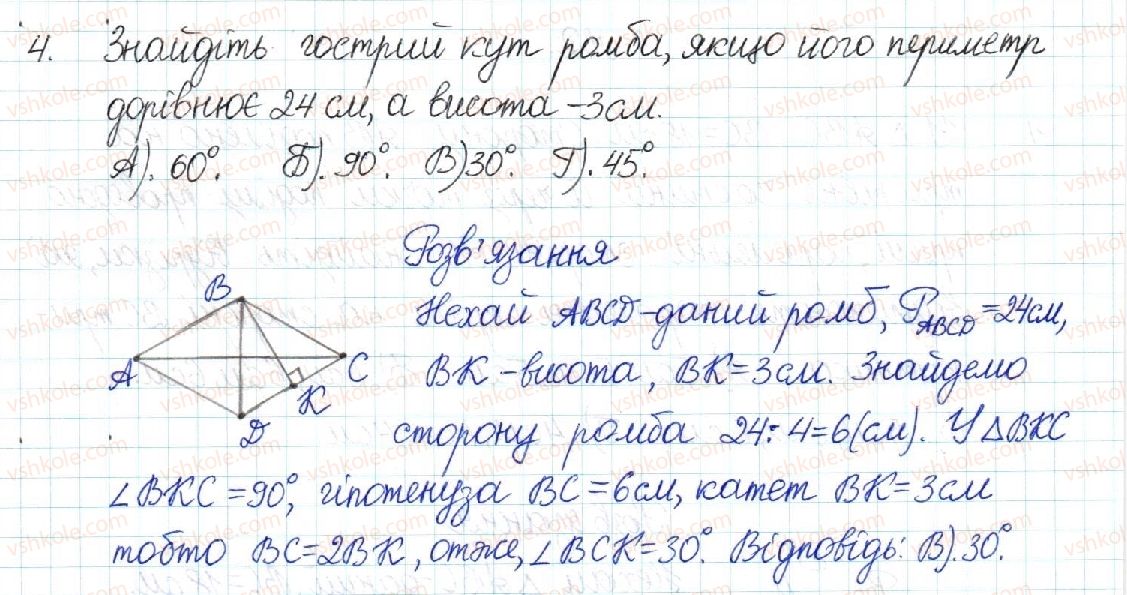 4. Знайдіть гострий кут ромба, якщо його периметр
дорівнює 24 см, а висота - 3 см.
А). 60°. Б). 90°. В) 30°. Г). 45°.
Розв'язання
Нехай ABCD - даний ромб, P_ABCD = 24 см,
BK - висота, BK = 3 см. Знайдемо
сторону ромба 24 : 4 = 6 (см). У △BKC
∠BKC = 90°, гіпотенуза BC = 6 см, катет BK = 3 см
тобто BC = 2BK, отже, ∠BCK = 30°. Відповідь: В). 30°.
B
A
C
K
D
vshkole.com